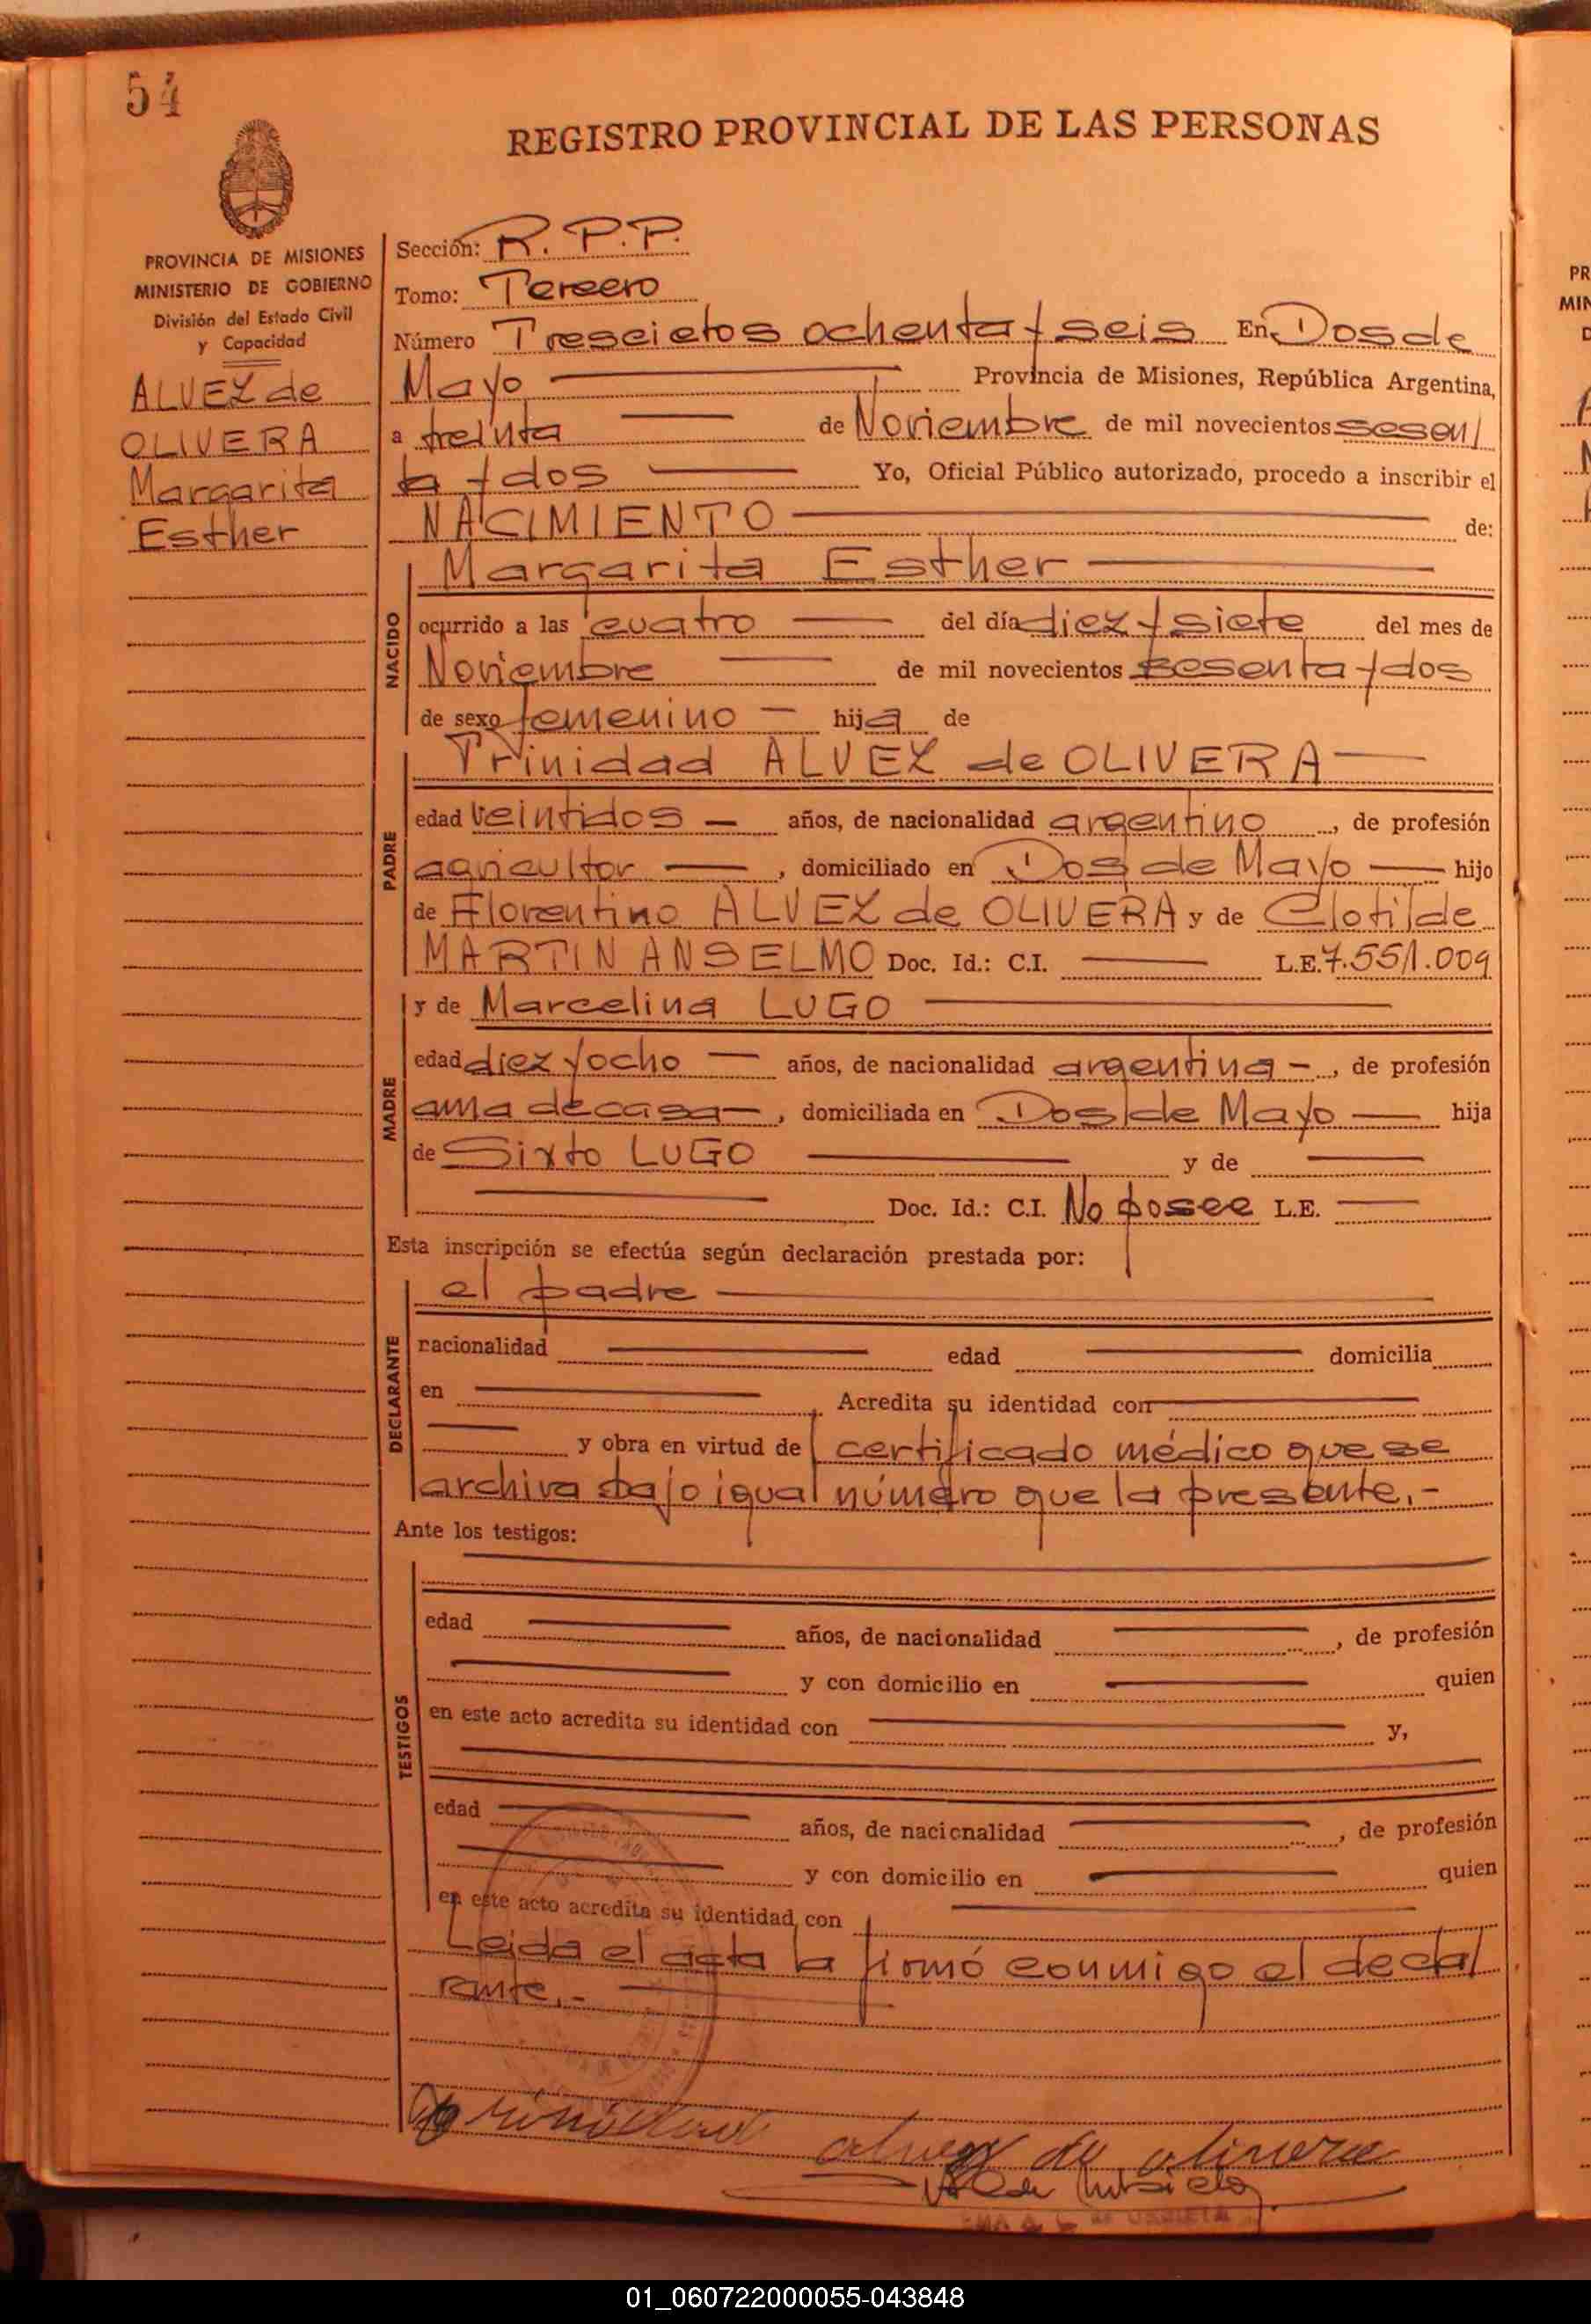 54
REGISTRO PROVINCIAL DE LAS PERSONAS
PROVINCIA DE MISIONES
MINISTERIO DE GOBIERNO
División del Estado Civil
y Capacidad
ALVEZ de
OLIVERA
Margarita
Esther
Sección: R. P. P.
Tomo: Tercero
Número Trescietos ochenta y seis En Dos de
Mayo Provincia de Misiones, República Argentina,
a treinta de Noviembre de mil novecientos sesen/
ta y dos Yo, Oficial Público autorizado, procedo a inscribir el
NACIMIENTO de:
Margarita Esther
NACIDO
ocurrido a las cuatro del día diez y siete del mes de
Noviembre de mil novecientos sesenta y dos
de sexo femenino hija de
Trinidad ALVEZ de OLIVERA
PADRE
edad veintidos años, de nacionalidad argentino, de profesión
agricultor, domiciliado en Dos de Mayo hijo
de Florentino ALVEZ de OLIVERA y de Clotilde
MARTIN ANSELMO Doc. Id.: C.I. L.E. 7.551.009
y de Marcelina LUGO
MADRE
edad diez y ocho años, de nacionalidad argentina -, de profesión
ama de casa, domiciliada en Dos de Mayo hija
de Sixto LUGO y de
Doc. Id.: C.I. No posee L.E.
Esta inscripción se efectúa según declaración prestada por:
el padre
DECLARANTE
racionalidad edad domicilia
en Acredita su identidad con
y obra en virtud de certificado médico que se
archiva bajo igual número que la presente.-
Ante los testigos:
TESTIGOS
edad años, de nacionalidad, de profesión
y con domicilio en quien
en este acto acredita su identidad con y,
edad años, de nacionalidad, de profesión
y con domicilio en quien
en este acto acredita su identidad con
Leida el acta la firmó conmigo el decla/
rante.-
Trinidad alvez de olivera
01_060722000055-043848